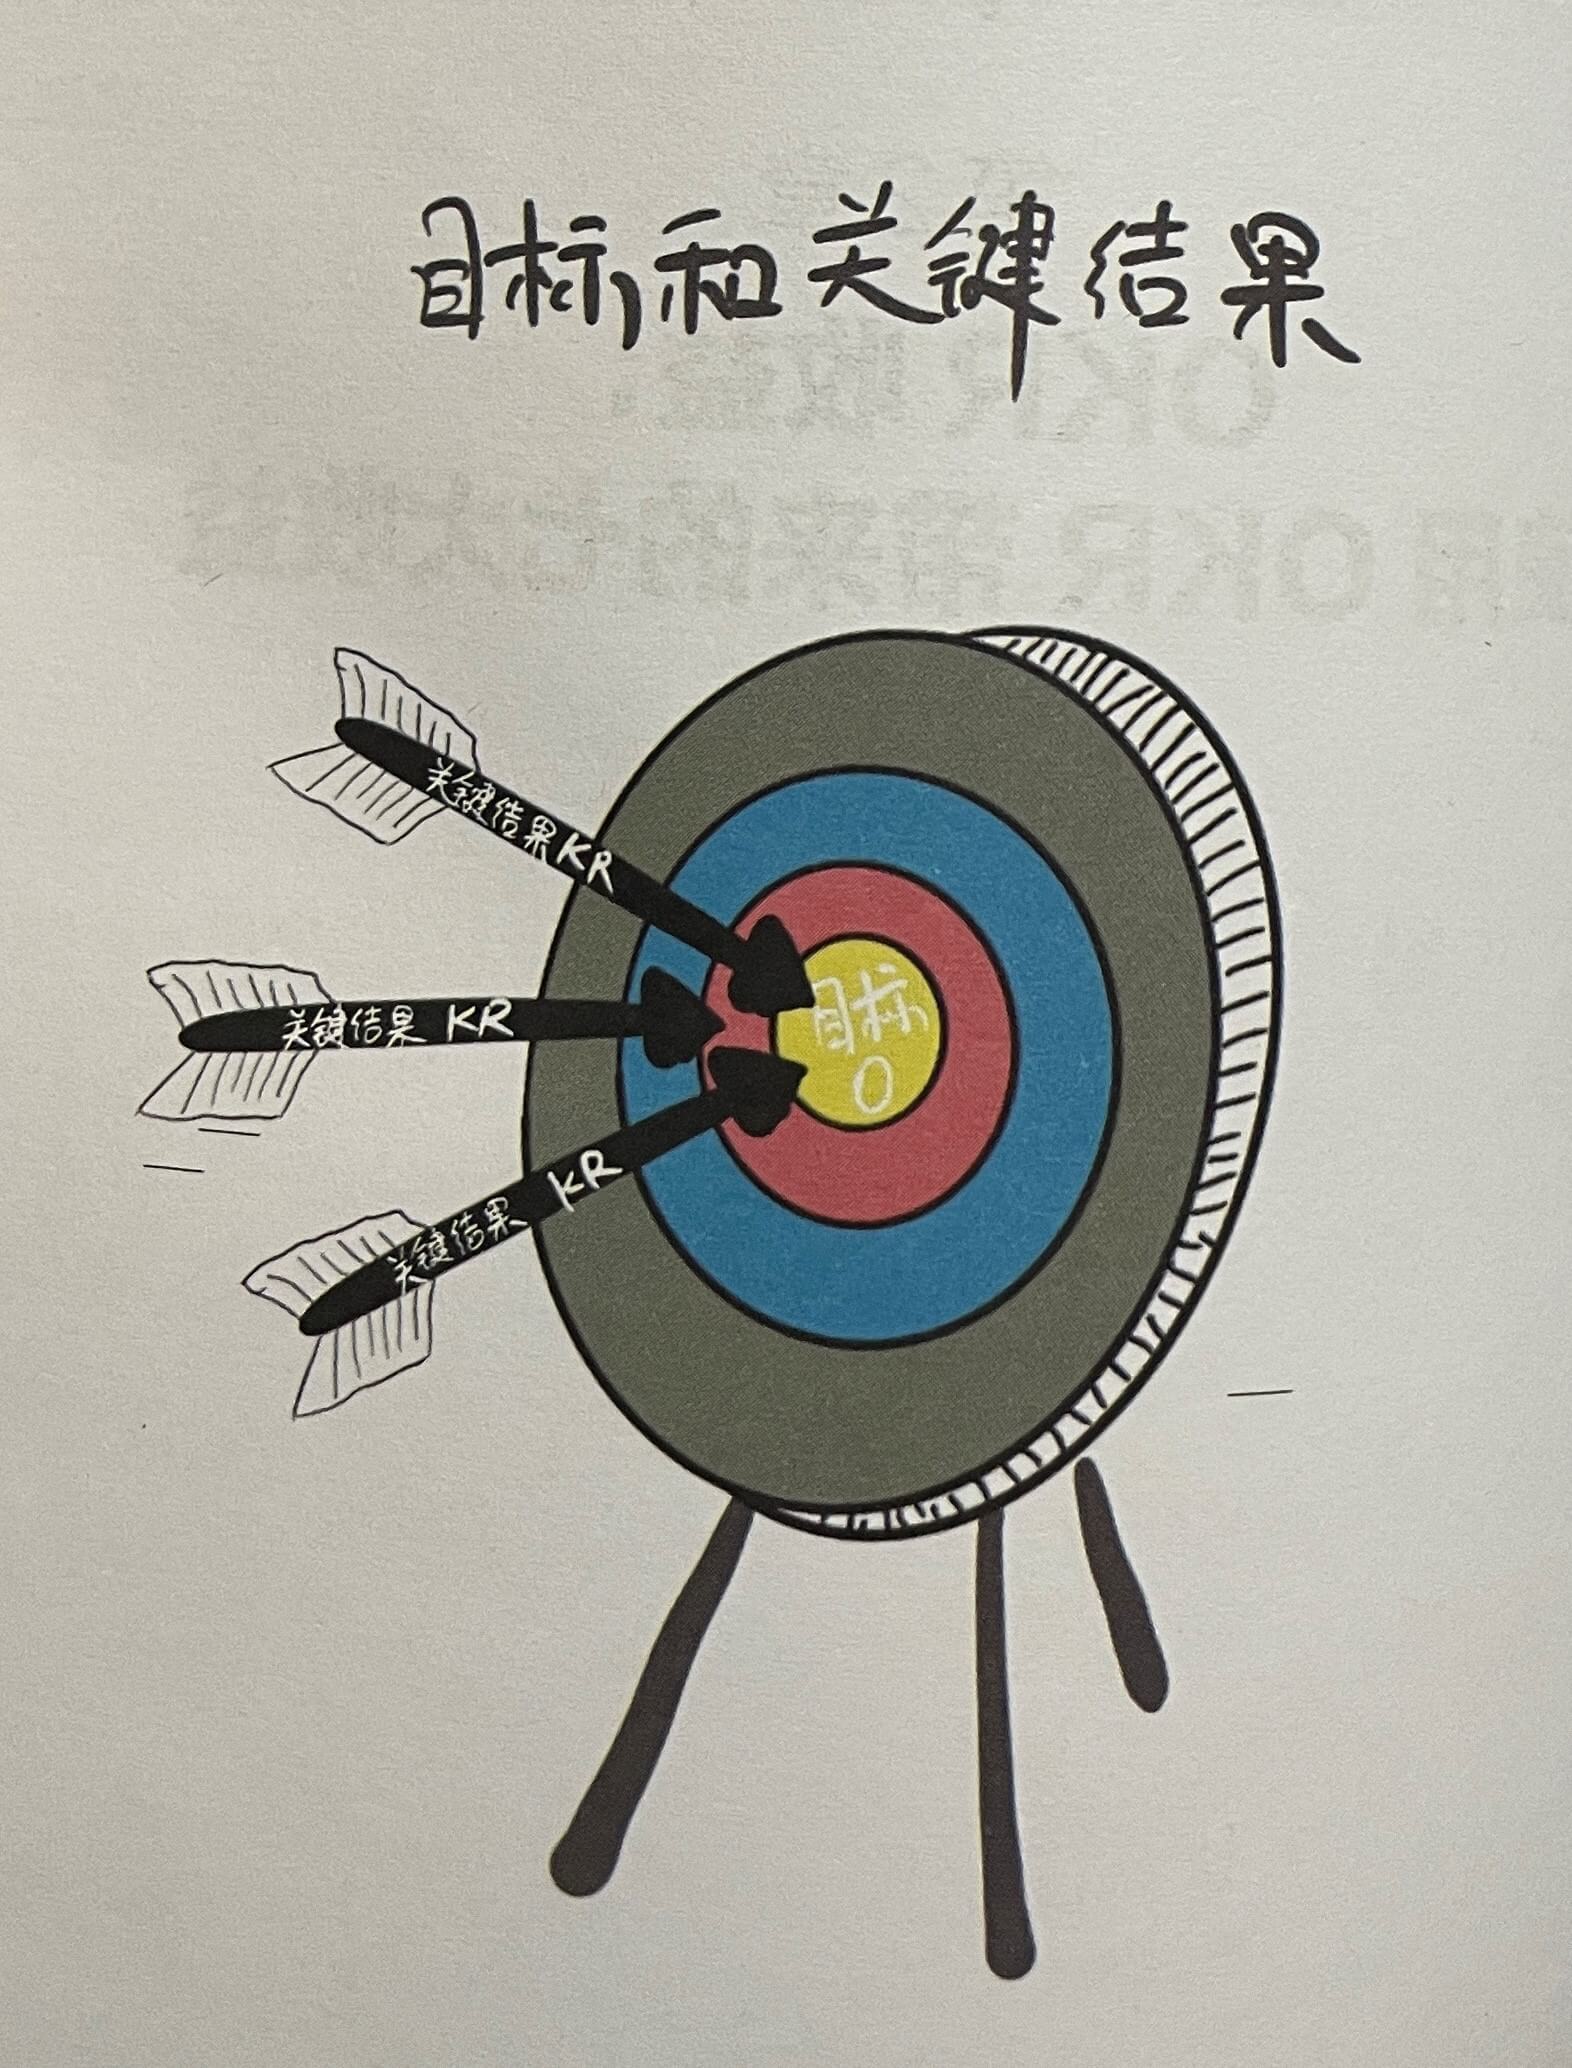 目标和关键结果
关键结果 KR
关键结果 KR
关键结果 KR
目标
O